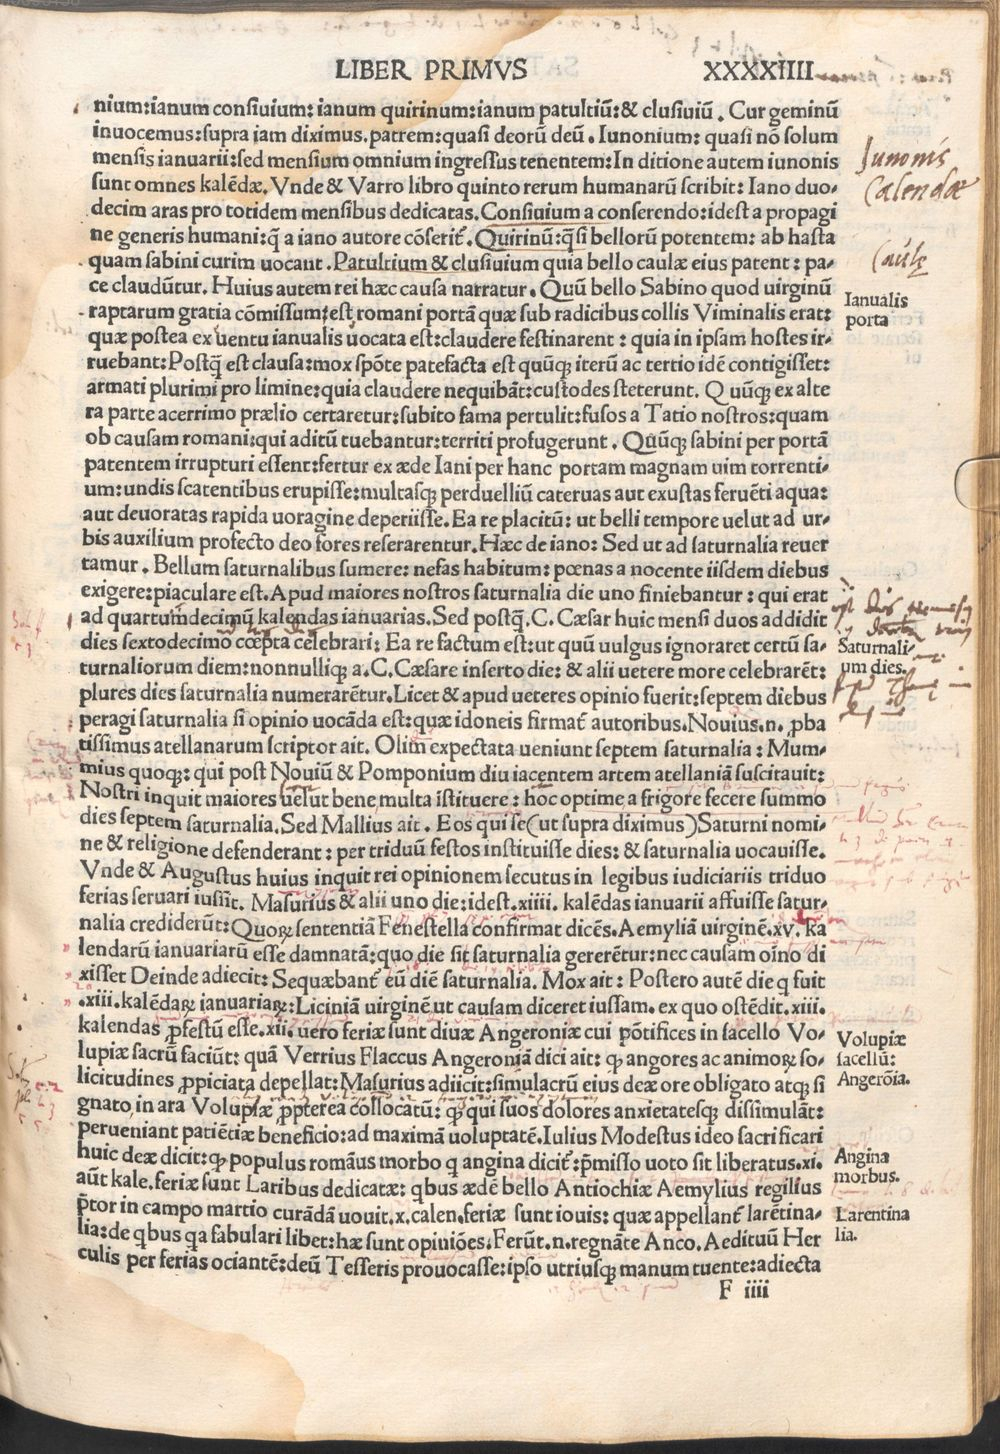 LIBER PRIMVS XXXXIIII
nium:ianum consiuium: ianum quirinum:ianum patultiū:& clusiuiū. Cur geminū
inuocemus:supra iam diximus. patrem:quasi deorū deū. Iunonium: quasi nō solum
mensis ianuarii:sed mensium omnium ingressus tenentem:In ditione autem iunonis
sunt omnes kalēdæ. Vnde & Varro libro quinto rerum humanarū scribit: Iano duo-
decim aras pro totidem mensibus dedicatas. Consiuium a conserendo:idest a propagi
ne generis humani:q̄ a iano autore cōserit̄. Quirinū:q̄si bellorū potentem: ab hasta
quam sabini curim uocant. Patultium & clusiuium quia bello caulæ eius patent: pa-
ce claudūtur. Huius autem rei hæc causa narratur. Quū bello Sabino quod uirginū
raptarum gratia cōmissum:est romani portā quæ sub radicibus collis Viminalis erat:
quæ postea ex uentu ianualis uocata est:claudere festinarent: quia in ipsam hostes ir-
ruebant:Postq̄ est clausa:mox spōte patefacta est quūq; iterū ac tertio idē contigisset:
armati plurimi pro limine:quia claudere nequibāt:custodes steterunt. Q uūq; ex alte
ra parte acerrimo prælio certaretur:subito fama pertulit:fusos a Tatio nostros:quam
ob causam romani:qui aditū tuebantur:territi profugerunt. Quūq; sabini per portā
patentem irrupturi essent:fertur ex æde Iani per hanc portam magnam uim torrenti-
um:undis scatentibus erupisse:multasq; perduelliū cateruas aut exustas feruēti aqua:
aut deuoratas rapida uoragine deperiisse. Ea re placitū: ut belli tempore uelut ad ur-
bis auxilium profecto deo fores reserarentur. Hæc de iano: Sed ut ad saturnalia reuer
tamur. Bellum saturnalibus sumere: nefas habitum: pœnas a nocente iisdem diebus
exigere:piaculare est. Apud maiores nostros saturnalia die uno finiebantur: qui erat
ad quartumdecimū kalendas ianuarias. Sed postq̄. C. Cæsar huic mensi duos addidit
dies sextodecimo cœpta celebrari: Ea re factum est:ut quū uulgus ignoraret certū sa-
turnaliorum diem:nonnulliq; a. C. Cæsare inserto die: & alii uetere more celebrarēt:
plures dies saturnalia numerarētur. Licet & apud ueteres opinio fuerit:septem diebus
peragi saturnalia si opinio uocāda est:quæ idoneis firmat̄ autoribus. Nouius.n. ꝓba
tissimus atellanarum scriptor ait. Olim expectata ueniunt septem saturnalia: Mum-
mius quoq: qui post Nouiū & Pomponium diu iacentem artem atellaniā suscitauit:
Nostri inquit maiores uelut bene multa istituere: hoc optime a frigore fecere summo
dies septem saturnalia. Sed Mallius ait. Eos qui se(ut supra diximus)Saturni nomi-
ne & religione defenderant: per triduū festos instituisse dies: & saturnalia uocauisse.
Vnde & Augustus huius inquit rei opinionem secutus in legibus iudiciariis triduo
ferias seruari iussit. Masurius & alii uno die:idest.xiiii. kalēdas ianuarii affuisse satur-
nalia crediderūt:Quorꝝ sententiā Fenestella confirmat dicēs. Aemyliā uirginē.xv. ka
lendarū ianuariarū esse damnatā:quo die sit saturnalia gererētur:nec causam oīno di
xisset Deinde adiecit: Sequæbant̄ eū diē saturnalia. Mox ait: Postero autē die q fuit
.xiii. kalēdarꝝ ianuariarꝝ:Liciniā uirginē ut causam diceret iussam. ex quo ostēdit.xiii.
kalendas ꝓfestū esse.xii. uero feriæ sunt diuæ Angeroniæ cui pōtifices in sacello Vo-
lupiæ sacrū faciūt: quā Verrius Flaccus Angeroniā dici ait: ꝙ angores ac animorꝝ so-
licitudines ꝓpiciata depellat: Masurius adiicit:simulacrū eius deæ ore obligato atq; si
gnato in ara Volupiæ ꝓpterea collocatū: ꝙ qui suos dolores anxietatesq; dissimulāt:
perueniant patiētiæ beneficio:ad maximā uoluptatē. Iulius Modestus ideo sacrificari
huic deæ dicit:ꝙ populus romāus morbo q angina dicit̄:p̄misso uoto sit liberatus.xi.
aūt kale. feriæ sunt Laribus dedicatæ: qbus ædē bello Antiochiæ Aemylius regilius
p̄tor in campo martio curādā uouit.x.calen.feriæ sunt iouis: quæ appellant̄ larētina-
lia:de qbus qa fabulari libet:hæ sunt opiniōes. Ferūt.n. regnāte Anco. Aedituū Her
culis per ferias ociantē:deū Tesseris prouocasse:ipso utriusq; manum tuente:adiecta
F iiii
Iunonis
Calendæ
Caulę
Ianualis
porta
Saturnali-
um dies.
Volupiæ
sacellū:
Angerōia.
Angina
morbus.
Larentina
lia.